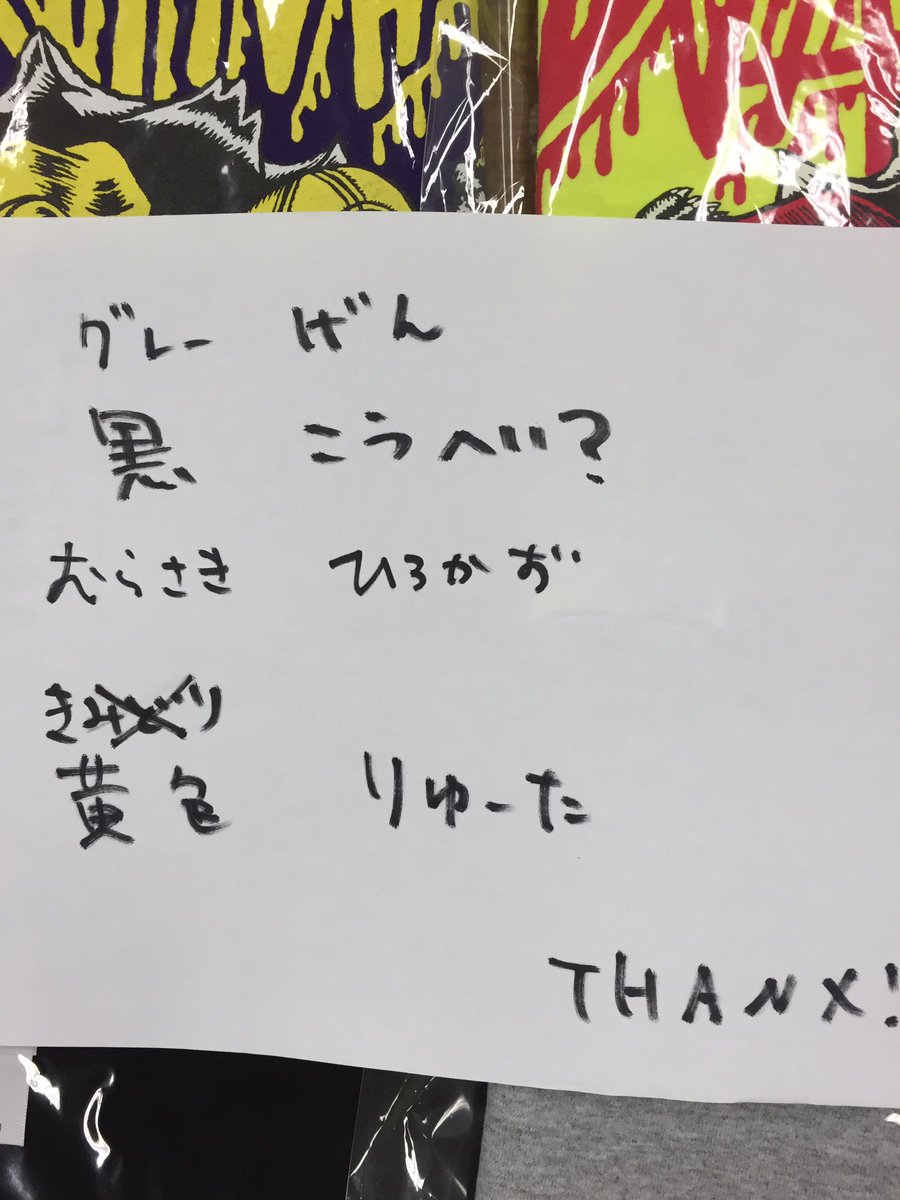 グレー げん
黒 こうへい?
むらさき ひろかず
きみどり
黄色 りゅーた
THANX!